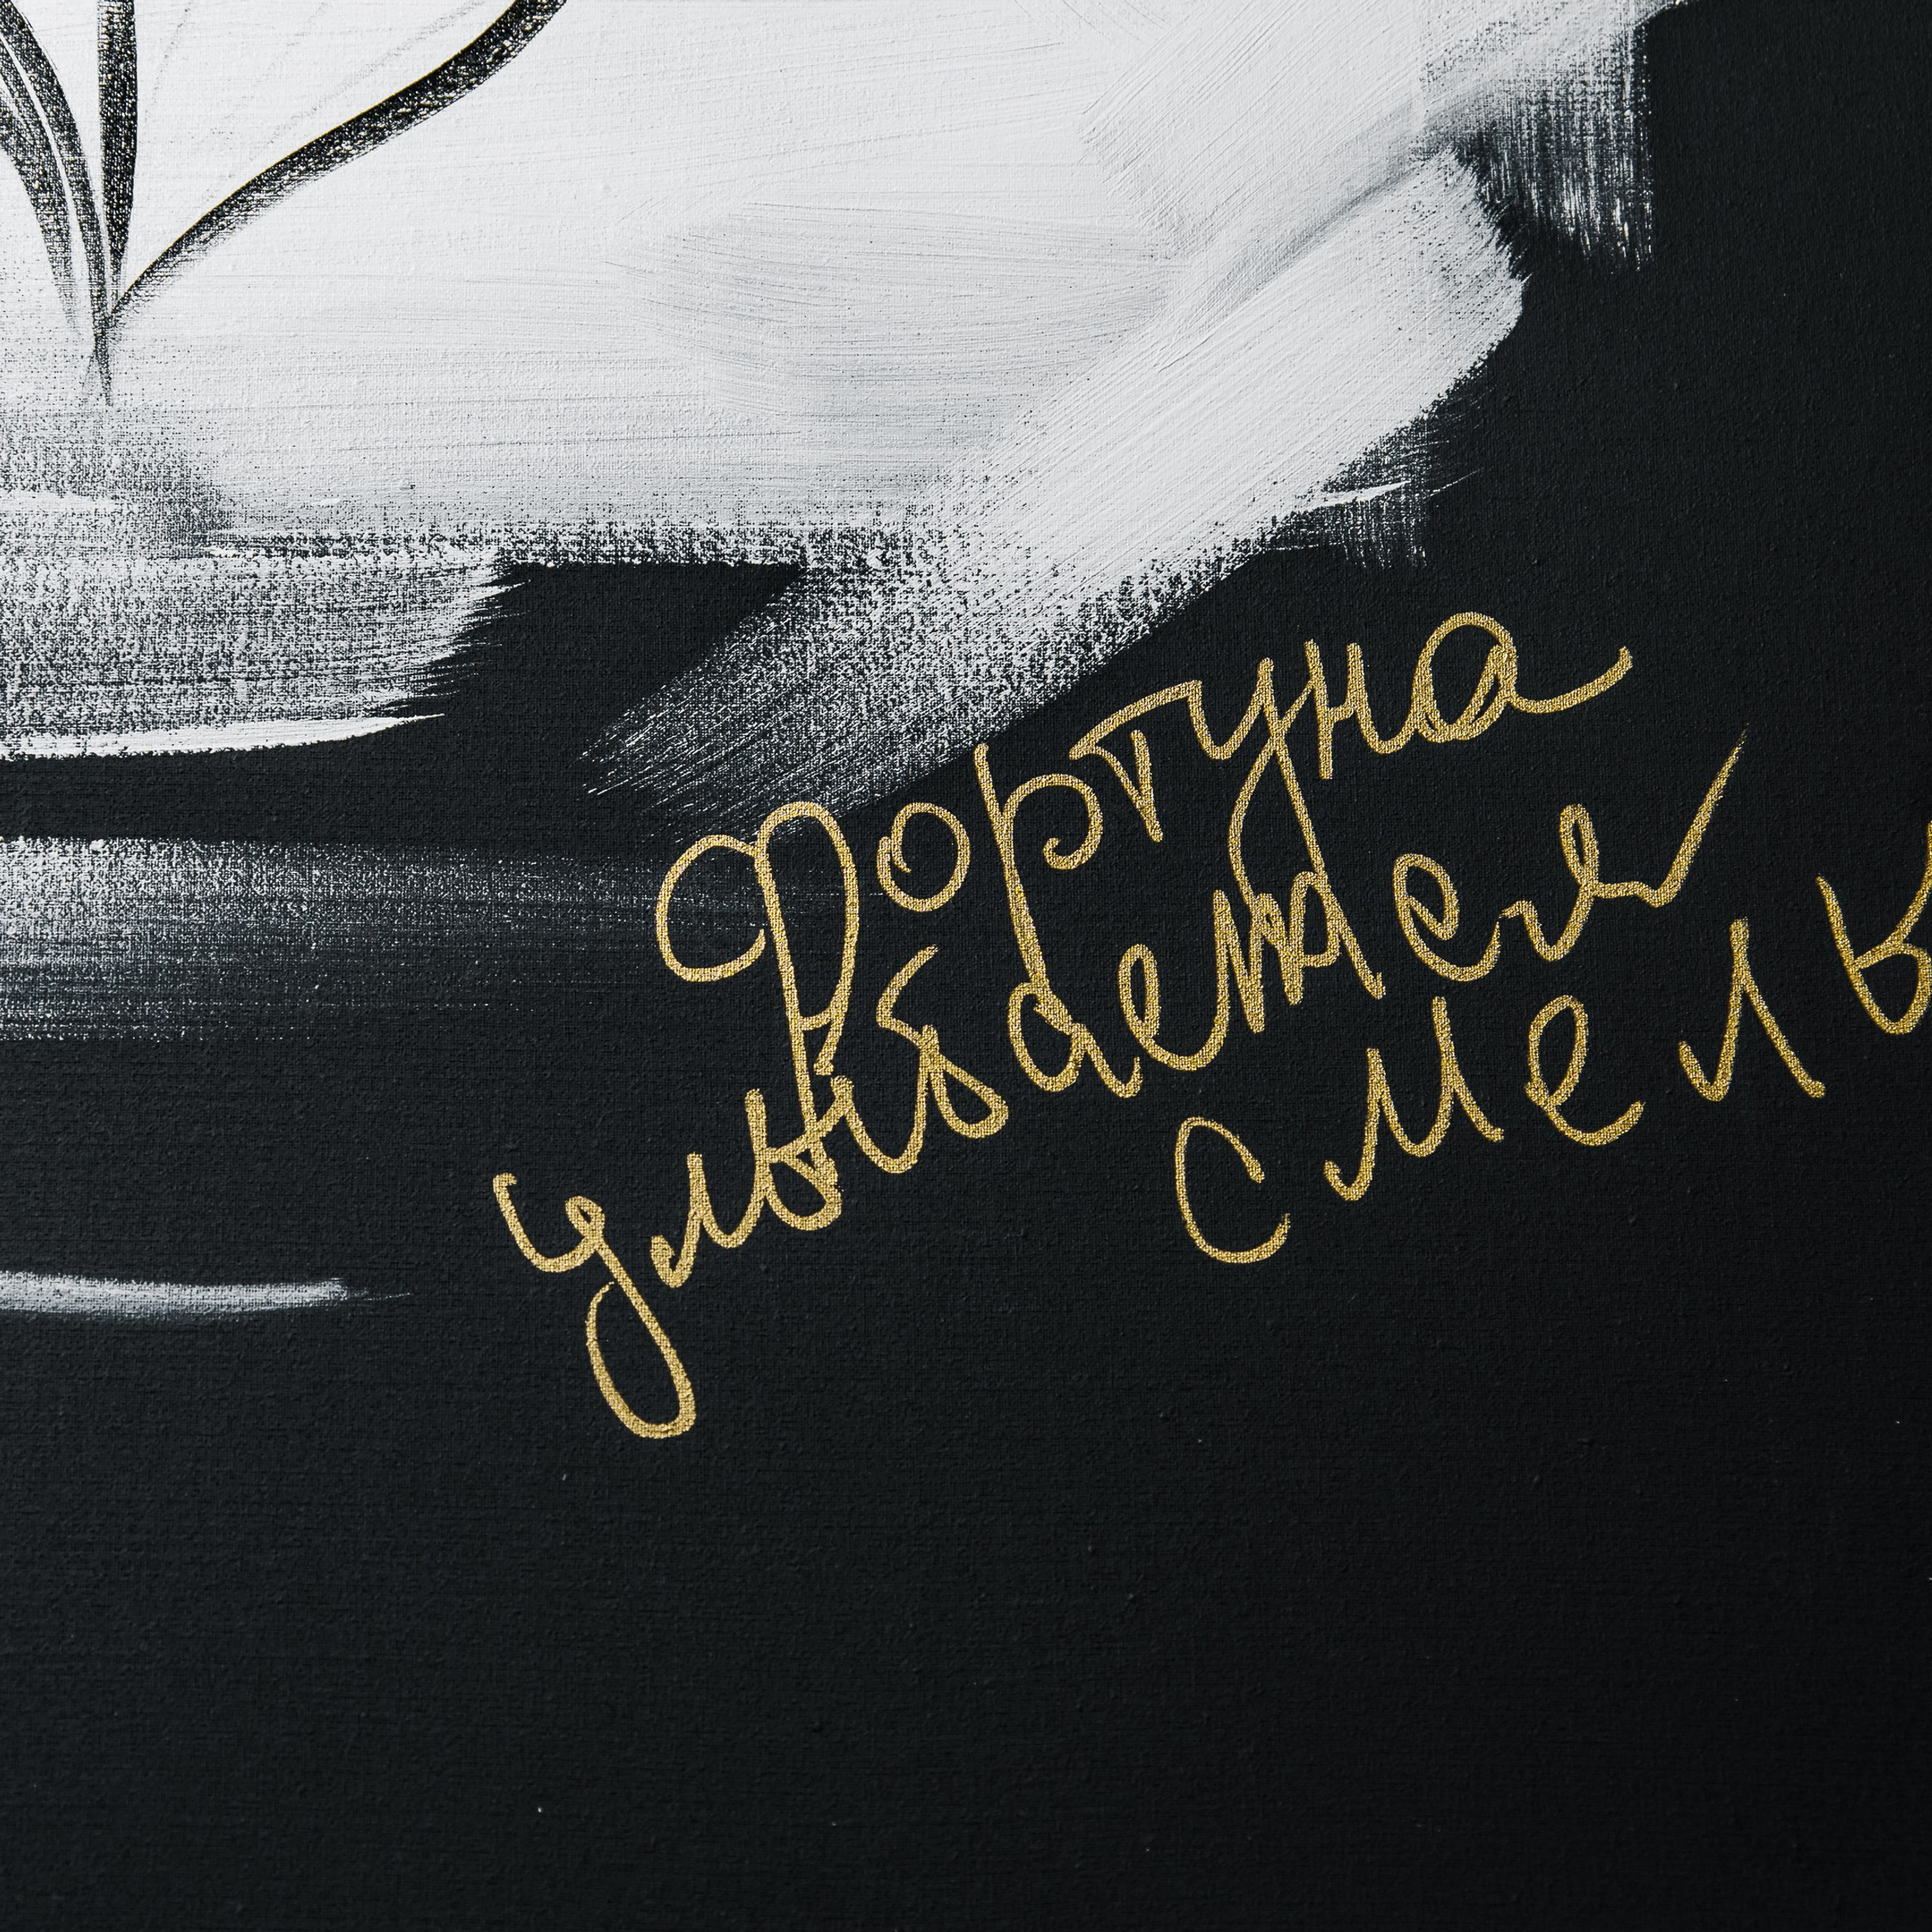 Фортуна
улыбается
смелы